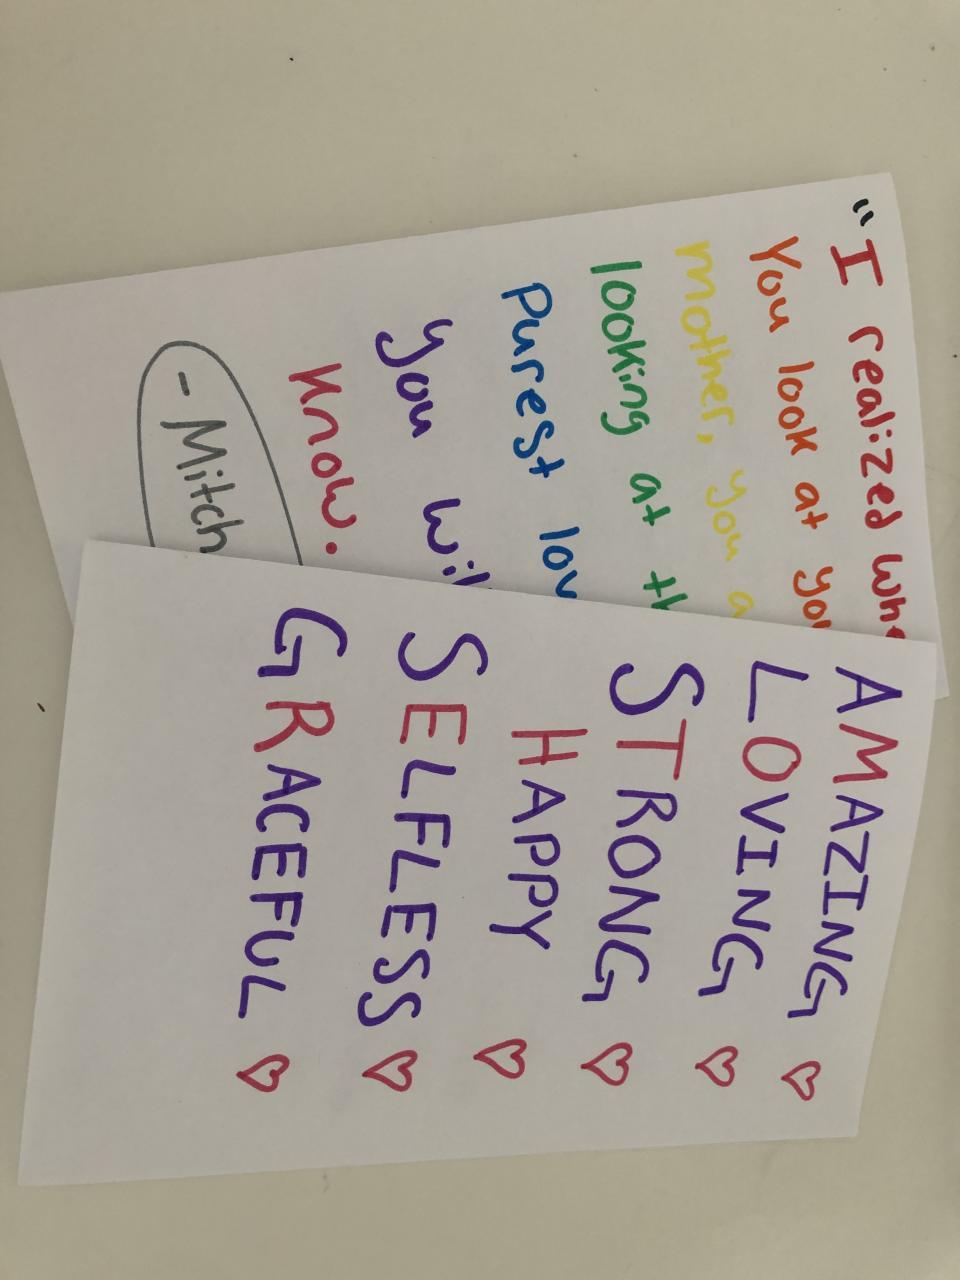 "I realized
You look at
mother, you
looking at
Purest
you
know.
- Mitch
AMAZING
LOVING
STRONG
HAPPY
SELFLESS
GRACEFUL